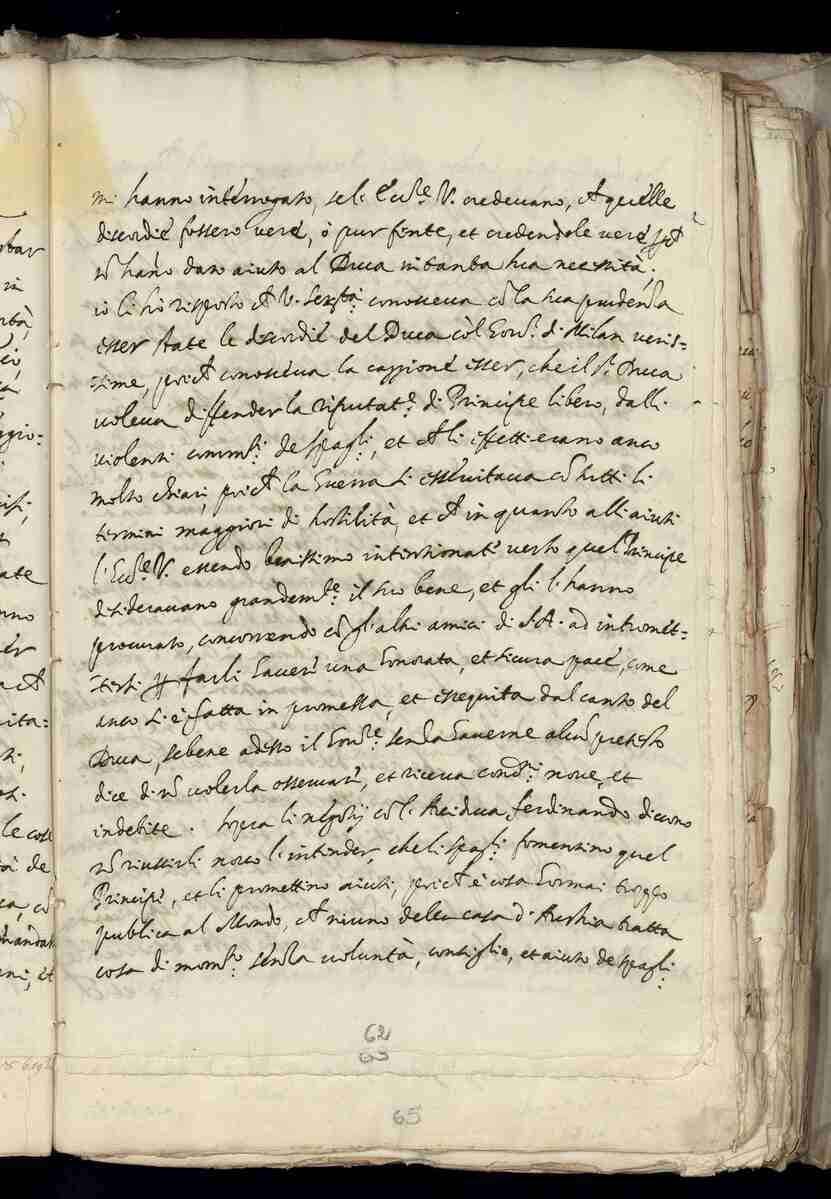 mi hanno interrogato, se l'Ecc.ze V. credevano, ch quelle
discordie fossero vere, ò pur finte, et credendole vere
nõ hañ dato aiuto al Duca in tanta sua necessità;
io li hò risposto ch V. Seren.tà conosceva cõ la sua prudenza
esser state le discordie del Duca còl Gov.r di Milan veris=
sime, poich conosceva la caggione esser, che il S.r Duca
voleva diffender la riputat.e di Principe libero, dalli
violenti comm.ti de spag.li, et ch li effetti erano anco
molto chiari, poich la Guerra si essercitava cõ tutti li
termini maggiori di hostilità, et ch in quanto alli aiuti
l'Ecc.ze V. essendo benissimo intentionate verso quel Principe
desideravano grandem.te il suo bene, et gli l'hanno
procurato, concorrendo cõ gl'altri amici di S.A. ad intromet=
tersi p farli haver una honorata, et sicura pace, come
anco si è fatta in promessa, et esseguita dal canto del
Duca, sebene adesso il Gov.re senza haverne alcũ pretesto
dice di nõ volerla osservare, et ricerca cond.ni nove, et
indebite. Sopra li negotij cõ l'Arciduca ferdinando dicono
nõ riuscirli novo l'intender, che li spag.li fomentino quel
Principe, et li promettino aiuti, poich è cosa hormai troppo
publica al Mondo, ch niuno della casa d'Austria tratta
cosa di mom.to senza voluntà, consiglio, et aiuto de spag.li
62
65